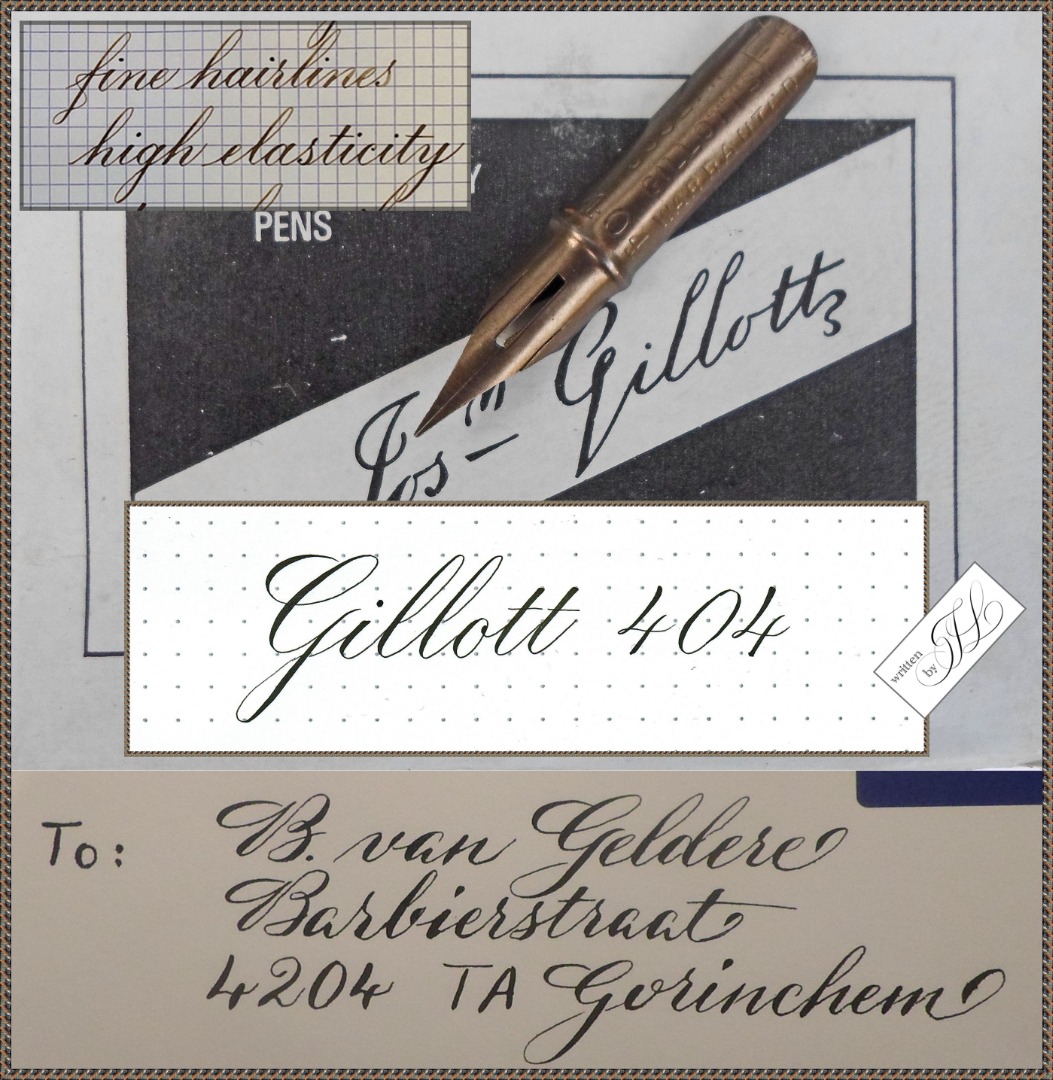 fine hairlines
high elasticity
PENS
Jos
m
Gillotts
Gillott 404
written
by JH
To:
B. van Geldere
Barbierstraat
4204 TA Gorinchem